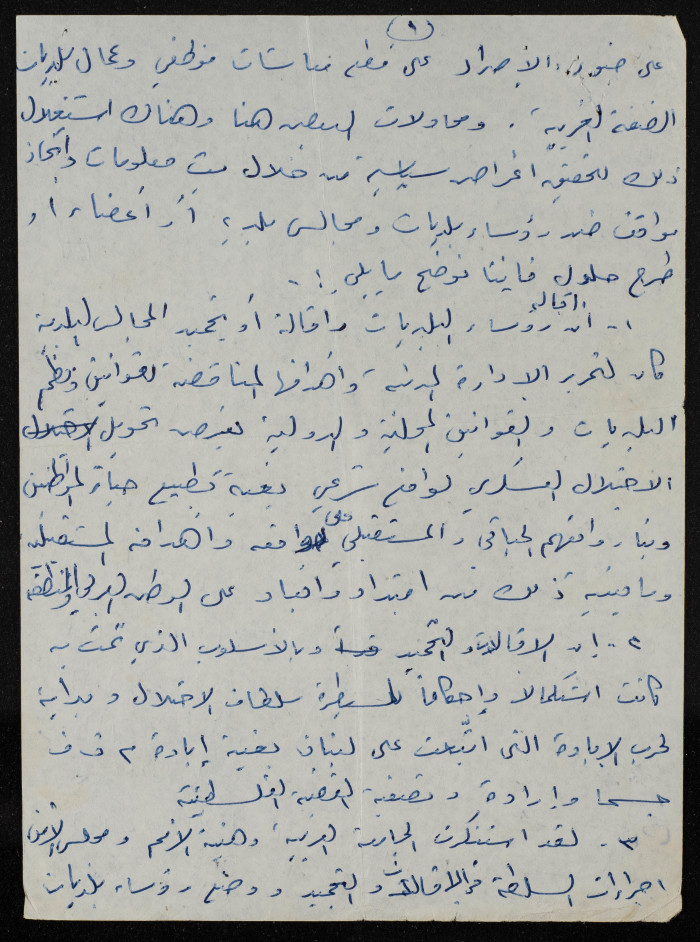 (١)
على ضوء الاصرار على قطع معاشات موظفي وعمال بلديات
الضفة الغربية . ومحاولات البعض هنا وهناك استغلال
ذلك لتحقيق اغراض سياسية من خلال بث معلومات واتخاذ
مواقف ضد رؤساء بلديات ومجالس بلدية أو أعضاء أو
طرح حلول فاننا نوضح ما يلي :
١- ان اقالة رؤساء البلديات واقالة أو تجميد المجالس البلدية
كان لتمرير الادارة المدنية وأهدافها المناقضة لقوانين ونظم
البلديات والقوانين المحلية والدولية بغرض تحويل
الاحتلال العسكري لواقع شرعي بغية تطبيع حياة المواطنين
وبناء واقعهم الحياتي والمستقبلي على واقعه وأهدافه المستقبلية
وما يعنيه ذلك من امتداد على الوطن العربي والمنطقة
٢- إن الاقالات والتجميد وبالأسلوب الذي تمت به
كانت استكمالا وإحكاماً لسيطرة سلطات الاحتلال وبداية
لحرب الابادة التي اتبعت على لبنان بغية إبادة م ت ف
جسما وإرادة وتصفية القضية الفلسطينية
٣- لقد استنكرت الجامعة العربية وهيئة الأمم ومجلس الأمن
اجراءات السلطة في الاقالات والتجميد ووضع رؤساء بلديات